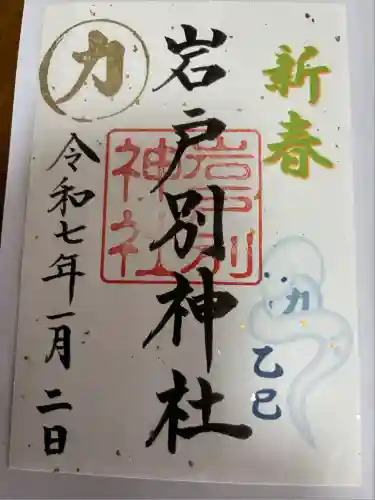 新春
岩戸別神社
岩戸別
神社
力
令和七年一月二日
力
乙巳